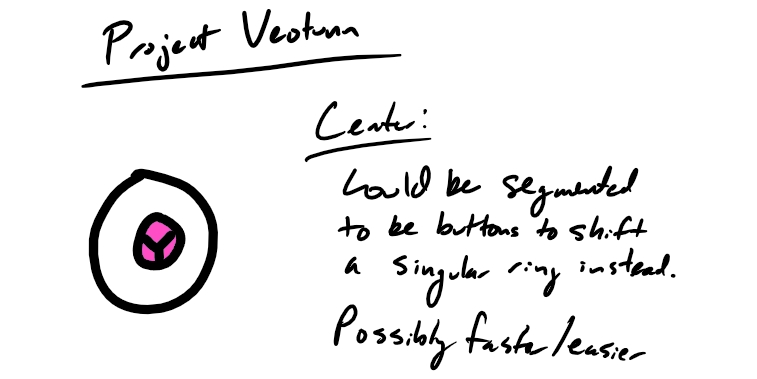 Project Veotunn
Center:
Could be segmented
to be buttons to shift
a singular ring instead.
Possibly faster/easier